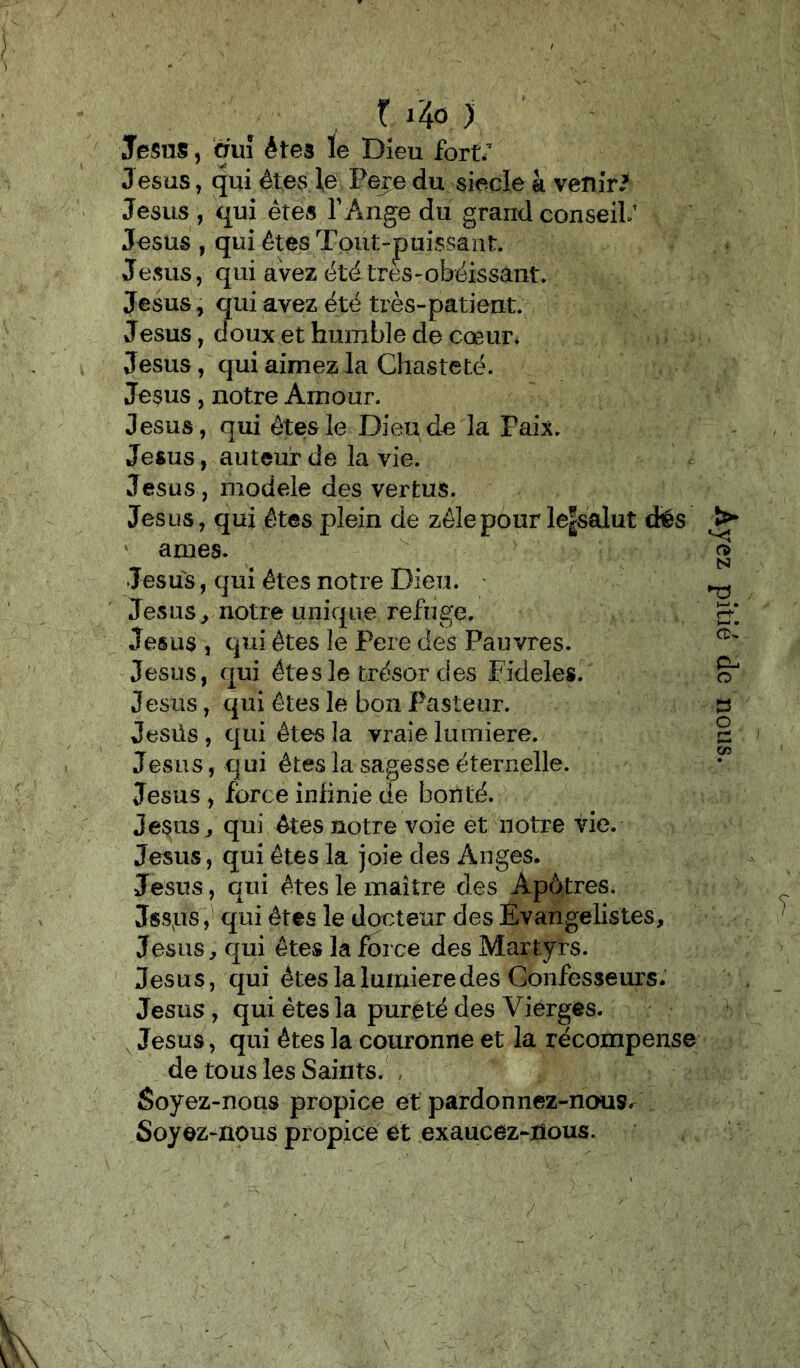 ( 140 )
Jesus, qui êtes le Dieu fort.
Jesus, qui êtes le Pere du siecle à venir.
Jesus, qui êtes l'Ange du grand conseil.
Jesus, qui êtes Tout-puissant.
Jesus, qui avez été très-obéissant.
Jesus, qui avez été très-patient.
Jesus, doux et humble de cœur.
Jesus, qui aimez la Chasteté.
Jesus, notre Amour.
Jesus, qui êtes le Dieu de la Paix.
Jesus, auteur de la vie.
Jesus, modele des vertus.
Jesus, qui êtes plein de zêle pour le salut des
ames.
Jesus, qui êtes notre Dieu.
Jesus, notre unique refuge.
Jesus, qui êtes le Pere des Pauvres.
Jesus, qui êtes le trésor des Fideles.
Jesus, qui êtes le bon Pasteur.
Jesus, qui êtes la vraie lumiere.
Jesus, qui êtes la sagesse éternelle.
Jesus, force infinie de bonté.
Jesus, qui êtes notre voie et notre vie.
Jesus, qui êtes la joie des Anges.
Jesus, qui êtes le maître des Apôtres.
Jssus, qui êtes le docteur des Evangelistes,
Jesus, qui êtes la force des Martyrs.
Jesus, qui êtes la lumiere des Confesseurs.
Jesus, qui êtes la pureté des Vierges.
Jesus, qui êtes la couronne et la récompense
de tous les Saints.
Soyez-nous propice et pardonnez-nous.
Soyez-nous propice et exaucez-nous.
Ayez pitié de nous.